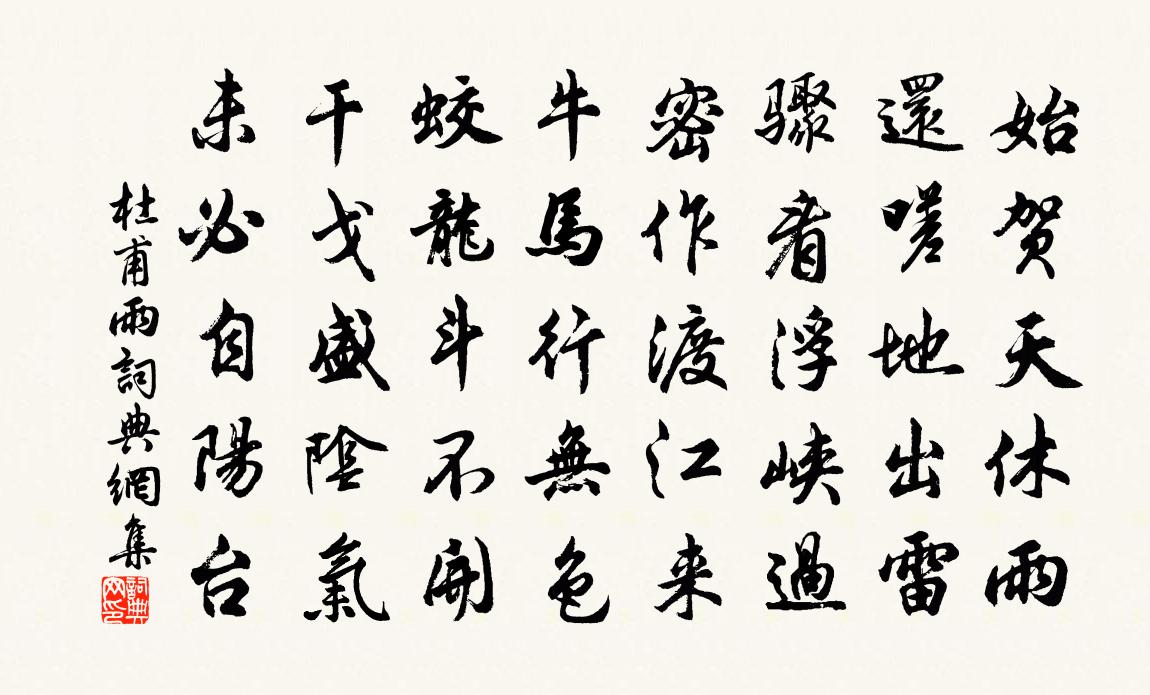 始贺天休雨
還嗟地出雷
驟看浮峽過
密作渡江来
牛馬行無色
蛟龍斗不開
干戈盛陰氣
未必自陽台
杜甫雨詞典網集
詞典網印